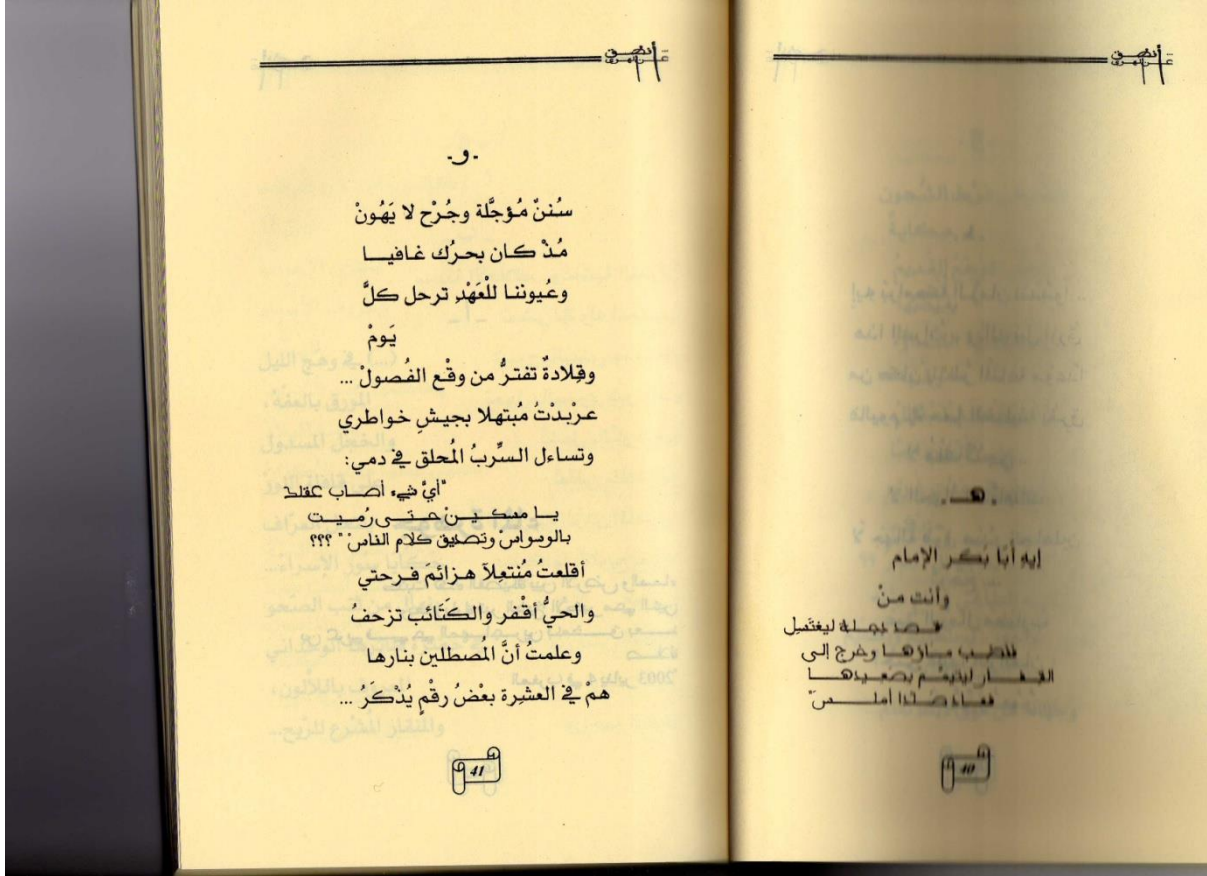 .هـ.
إيه أبَا بَكر الإمام
وأنت منْ
قصد دجلة ليغتسل
فنضب ماؤها وخرج إلى
القفار ليتيمّم بصعيدها
فعاد صَلدًا أملسَ
40
-و-
سُننٌ مُؤجَّلة وجُرْح لا يَهُونْ
مُذْ كان بحرُك غافيا
وعُيوننا للْعَهْدِ ترحل كلَّ
يَومْ
وقِلادةٌ تفترُّ من وقْع الفُصولْ ...
عربْدْتُ مُبتهلا بجيشِ خواطري
وتساءل السِّربُ المُحلق في دمي:
"أيَّ شيء أصاب عقلك
يا مسكين حتى رُميت
بالوسواسْ وتصديق كلام الناسْ" ؟؟؟
أقلعتُ مُنتعِلاً هزائم فرحتي
والحيُّ أقْفر والكَتَائب تزحفُ
وعلمتُ أنَّ المُصطلين بنارها
همْ في العشِرة بعْضُ رقْمٍ يُذْكَرُ ...
41